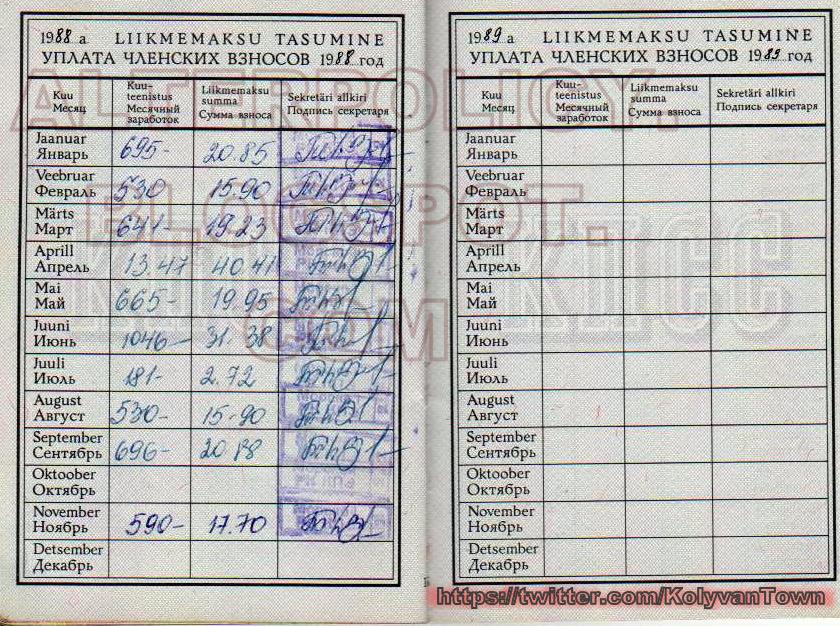 1988 a LIIKMEMAKSU TASUMINE
УПЛАТА ЧЛЕНСКИХ ВЗНОСОВ 1988 год
Kuu
Месяц
Kuu-
teenistus
Месячный
заработок
Liikmemaksu
summa
Сумма взноса
Sekretäri allkiri
Подпись секретаря
Jaanuar
Январь 695- 20.85
Veebruar
Февраль 530 15.90
Märts
Март 641- 19.23
Aprill
Апрель 13.47 40.41
Mai
Май 665- 19.95
Juuni
Июнь 1046- 31.38
Juuli
Июль 181- 2.72
August
Август 530- 15-90
September
Сентябрь 696- 20
Oktoober
Октябрь
November
Ноябрь 590- 17.70
Detsember
Декабрь
1989 a LIIKMEMAKSU TASUMINE
УПЛАТА ЧЛЕНСКИХ ВЗНОСОВ 1989 год
Kuu
Месяц
Kuu-
teenistus
Месячный
заработок
Liikmemaksu
summa
Сумма взноса
Sekretäri allkiri
Подпись секретаря
Jaanuar
Январь
Veebruar
Февраль
Märts
Март
Aprill
Апрель
Mai
Май
Juuni
Июнь
Juuli
Июль
August
Август
September
Сентябрь
Oktoober
Октябрь
November
Ноябрь
Detsember
Декабрь
ALTERPOLICY.
BLOGSPOT.
COM
https://twitter.com/KolyvanTown